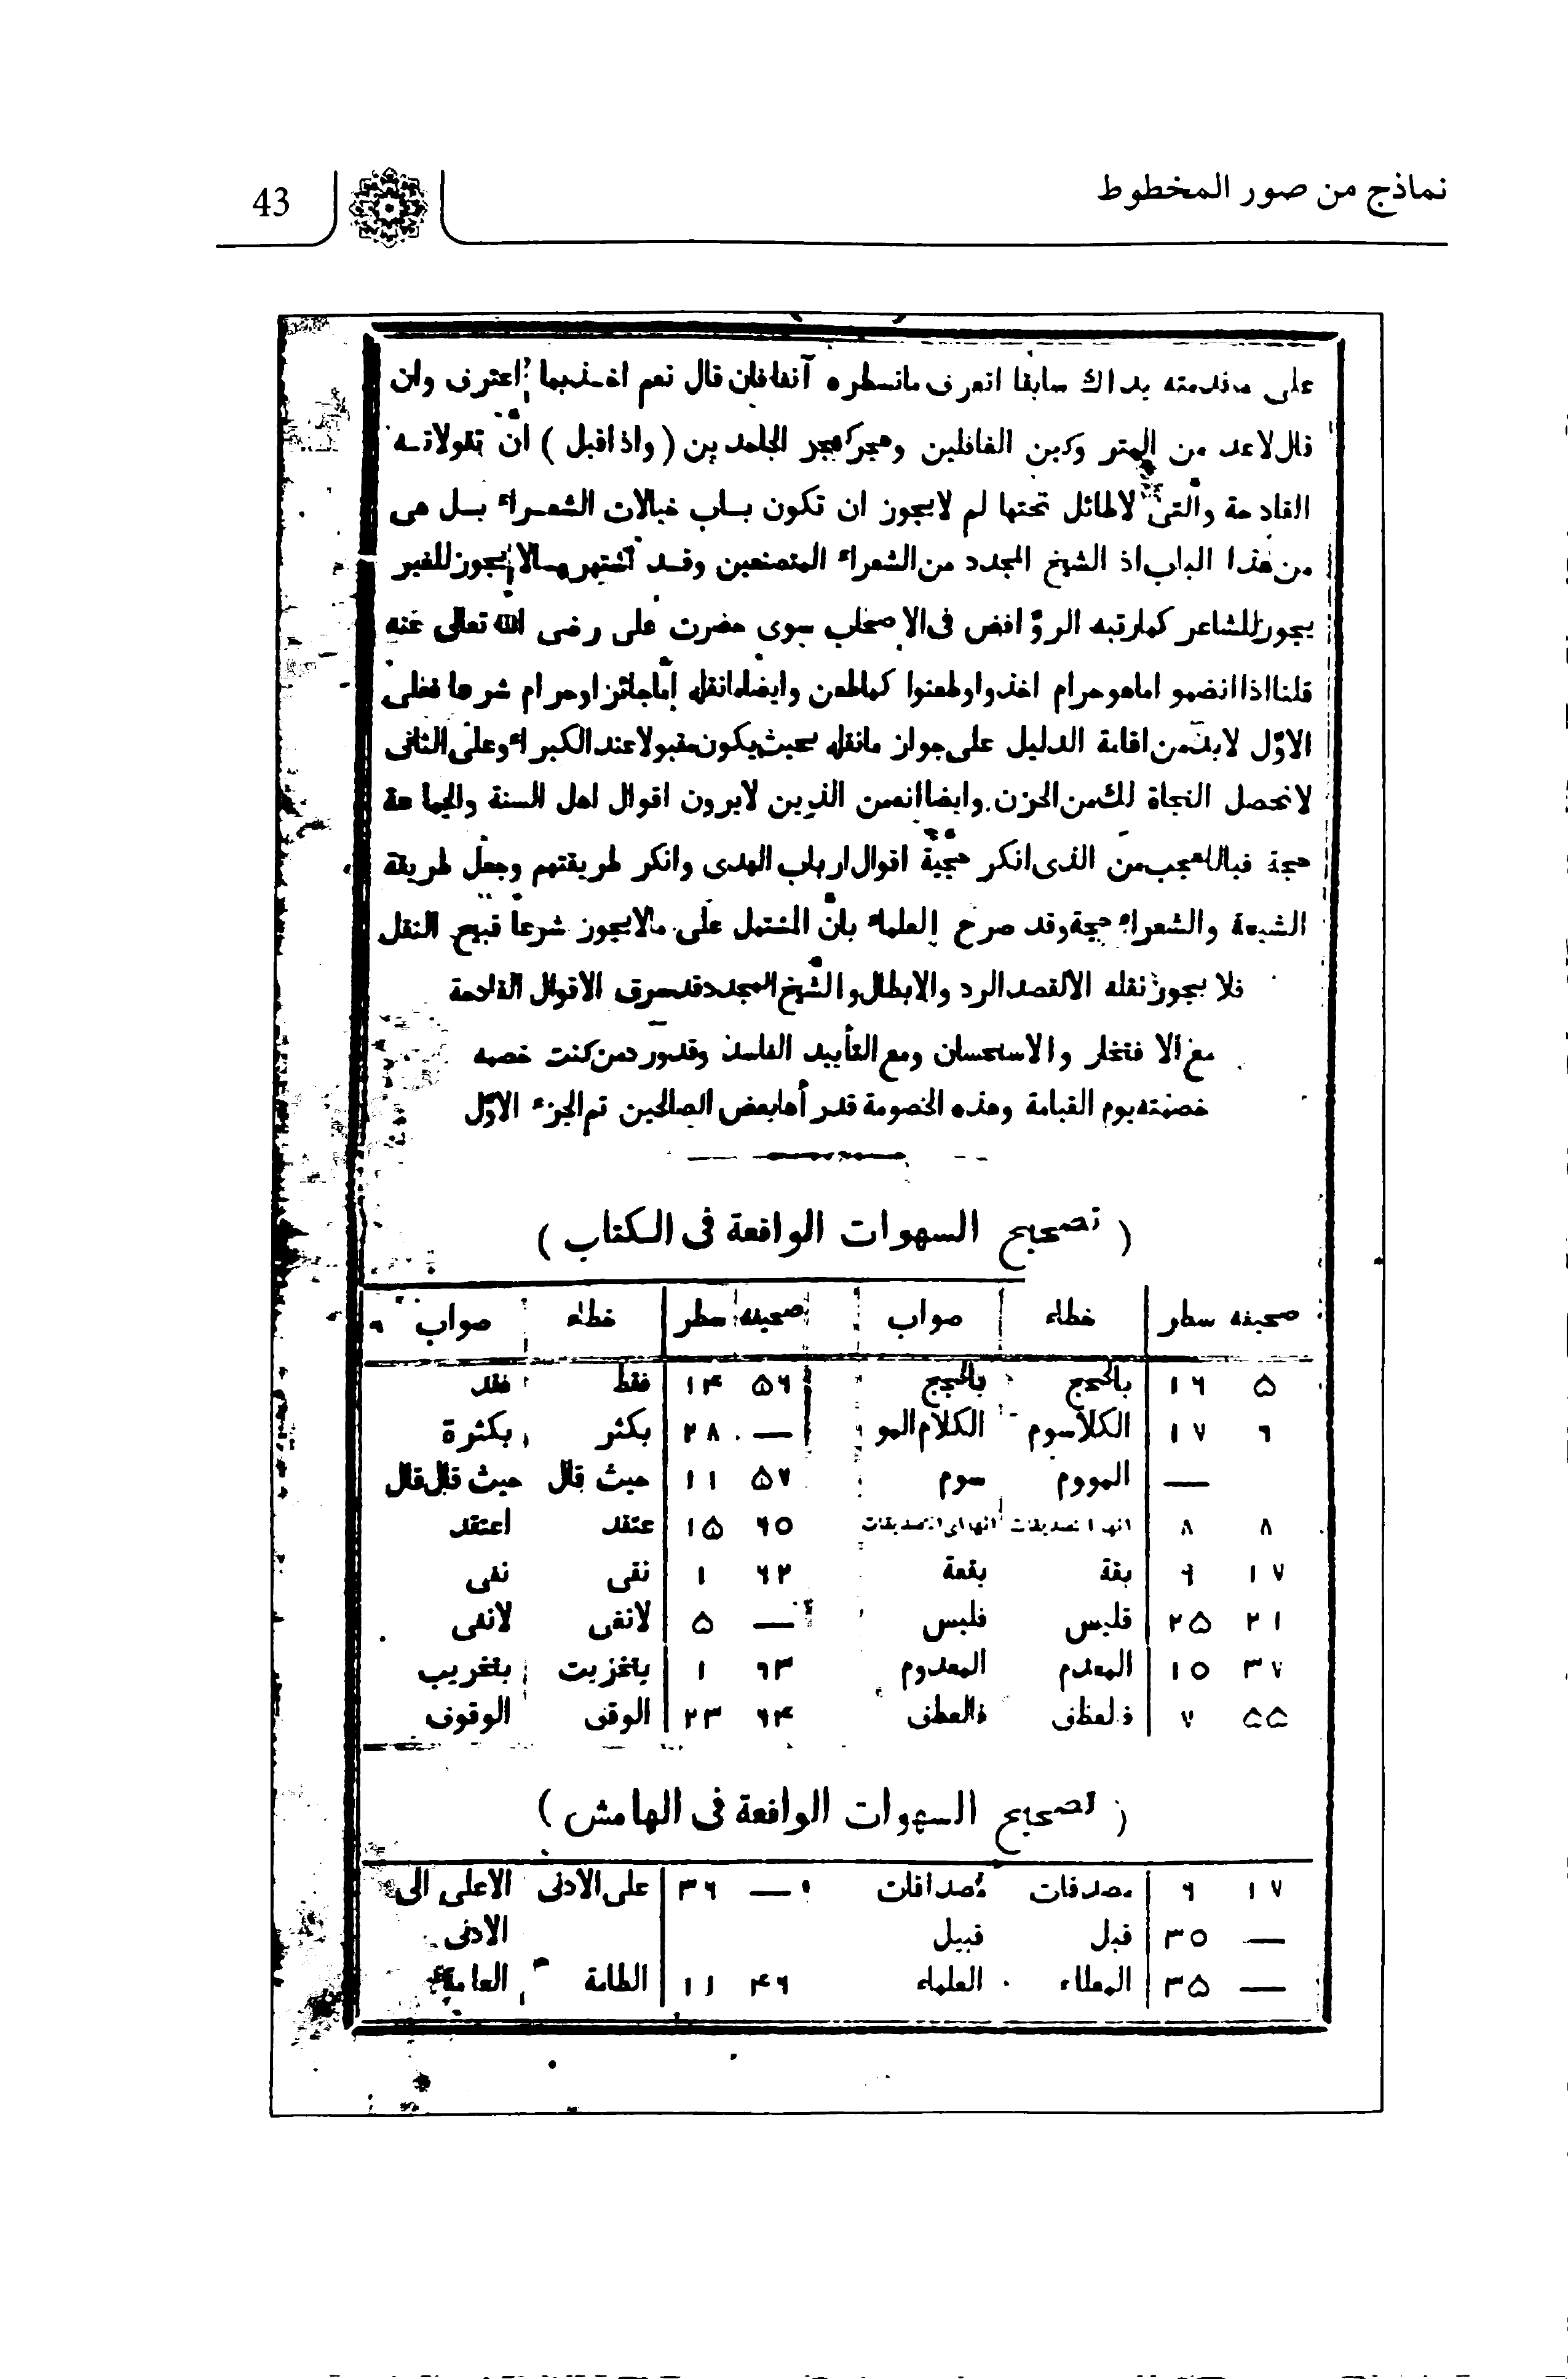 نماذج من صور المخطوط
43
على مقدمته يداك سابقا اتعرف مانسطره آنفا فان قال نعم اخذ بما اعترف وان
قال لاعد من المتر وكبن الغافلين وهجر كهجر الجامدين ( واذا قيل ) ان تقولاته
القادحة والتى لاطائل تحتها لم لا يجوز ان تكون باب خيالات الشعراء بل هى
من هذا الباب اذ الشيخ المجدد من الشعراء المتصنعين وقد اشتهر مالا يجوز للغير
يجوز للشاعر كمارتبه الروافض فى الاصحاب سوى حضرت على رضى الله تعالى عنه
قلنا اذا انضمو اماهو حرام اخذوا وطعنوا كماطعن وايضا مانقله اما جائز اوحرام شرعا فعلى
الاول لابد من اقامة الدليل على جواز مانقله بحيث يكون مقبولا عند الكبراء وعلى الثانى
لاتحصل النجاة لك من الحزن وايضا انه من الذين لايرون اقوال اهل السنة والجماعة
حجة فياللعجب من الذى انكر حجية اقوال ارباب الهدى وانكر طريقتهم وجعل طريقة
الشيعة والشعراء حجة وقد صرح العلماء بان المشتمل على مالايجوز شرعا قبيح النقل
فلا يجوز نقله الالقصد الرد والابطال والشيخ المجدد قد سرق الاقوال القادحة
مع الافتخار والاستحسان ومع التأييد الفاسد وقد ورد من كنت خصمه
خصمته يوم القيامة وهذه الخصومة قد رأها بعض الصالحين تم الجزء الاول
( تصحيح السهوات الواقعة فى الكتاب )
صحيفه سطر خطاء صواب صحيفه سطر خطاء صواب
۵ ۱۶ بالحجج بالحجج ۵۶ ۱۴ فقط فقد
٦ ۱۷ الكلاسوم الكلام المو — ۲۸ بكثر بكثرة
— المووم سوم ۵۷ ۱۱ حيث قال حيث قال قال
۸ ۸ انها التصديقات انها اى التصديقات ۶۰ ۱۵ عتقد اعتقد
۱۷ ۹ بقة بقعة ۶۲ ۱ نقى نفى
۲۱ ۲۵ قليس فليس — ۵ لانفى لانفى
۳۷ ۱۰ المعدم المعدوم ٦۳ ۱ بتغزيت بتغريب
۵۵ ۷ فلعظف فالعطف ۶۴ ۲۳ الوقف الوقوف
( تصحيح السهوات الواقعة فى الهامش )
۱۷ ۹ مصدقات مصداقات — ۳۶ على الادنى الاعلى الى
الادنى
— ۳۰ قبل قبيل
— ۳۵ المعلاء العلماء ۴۶ ۱۱ الطامة العامة